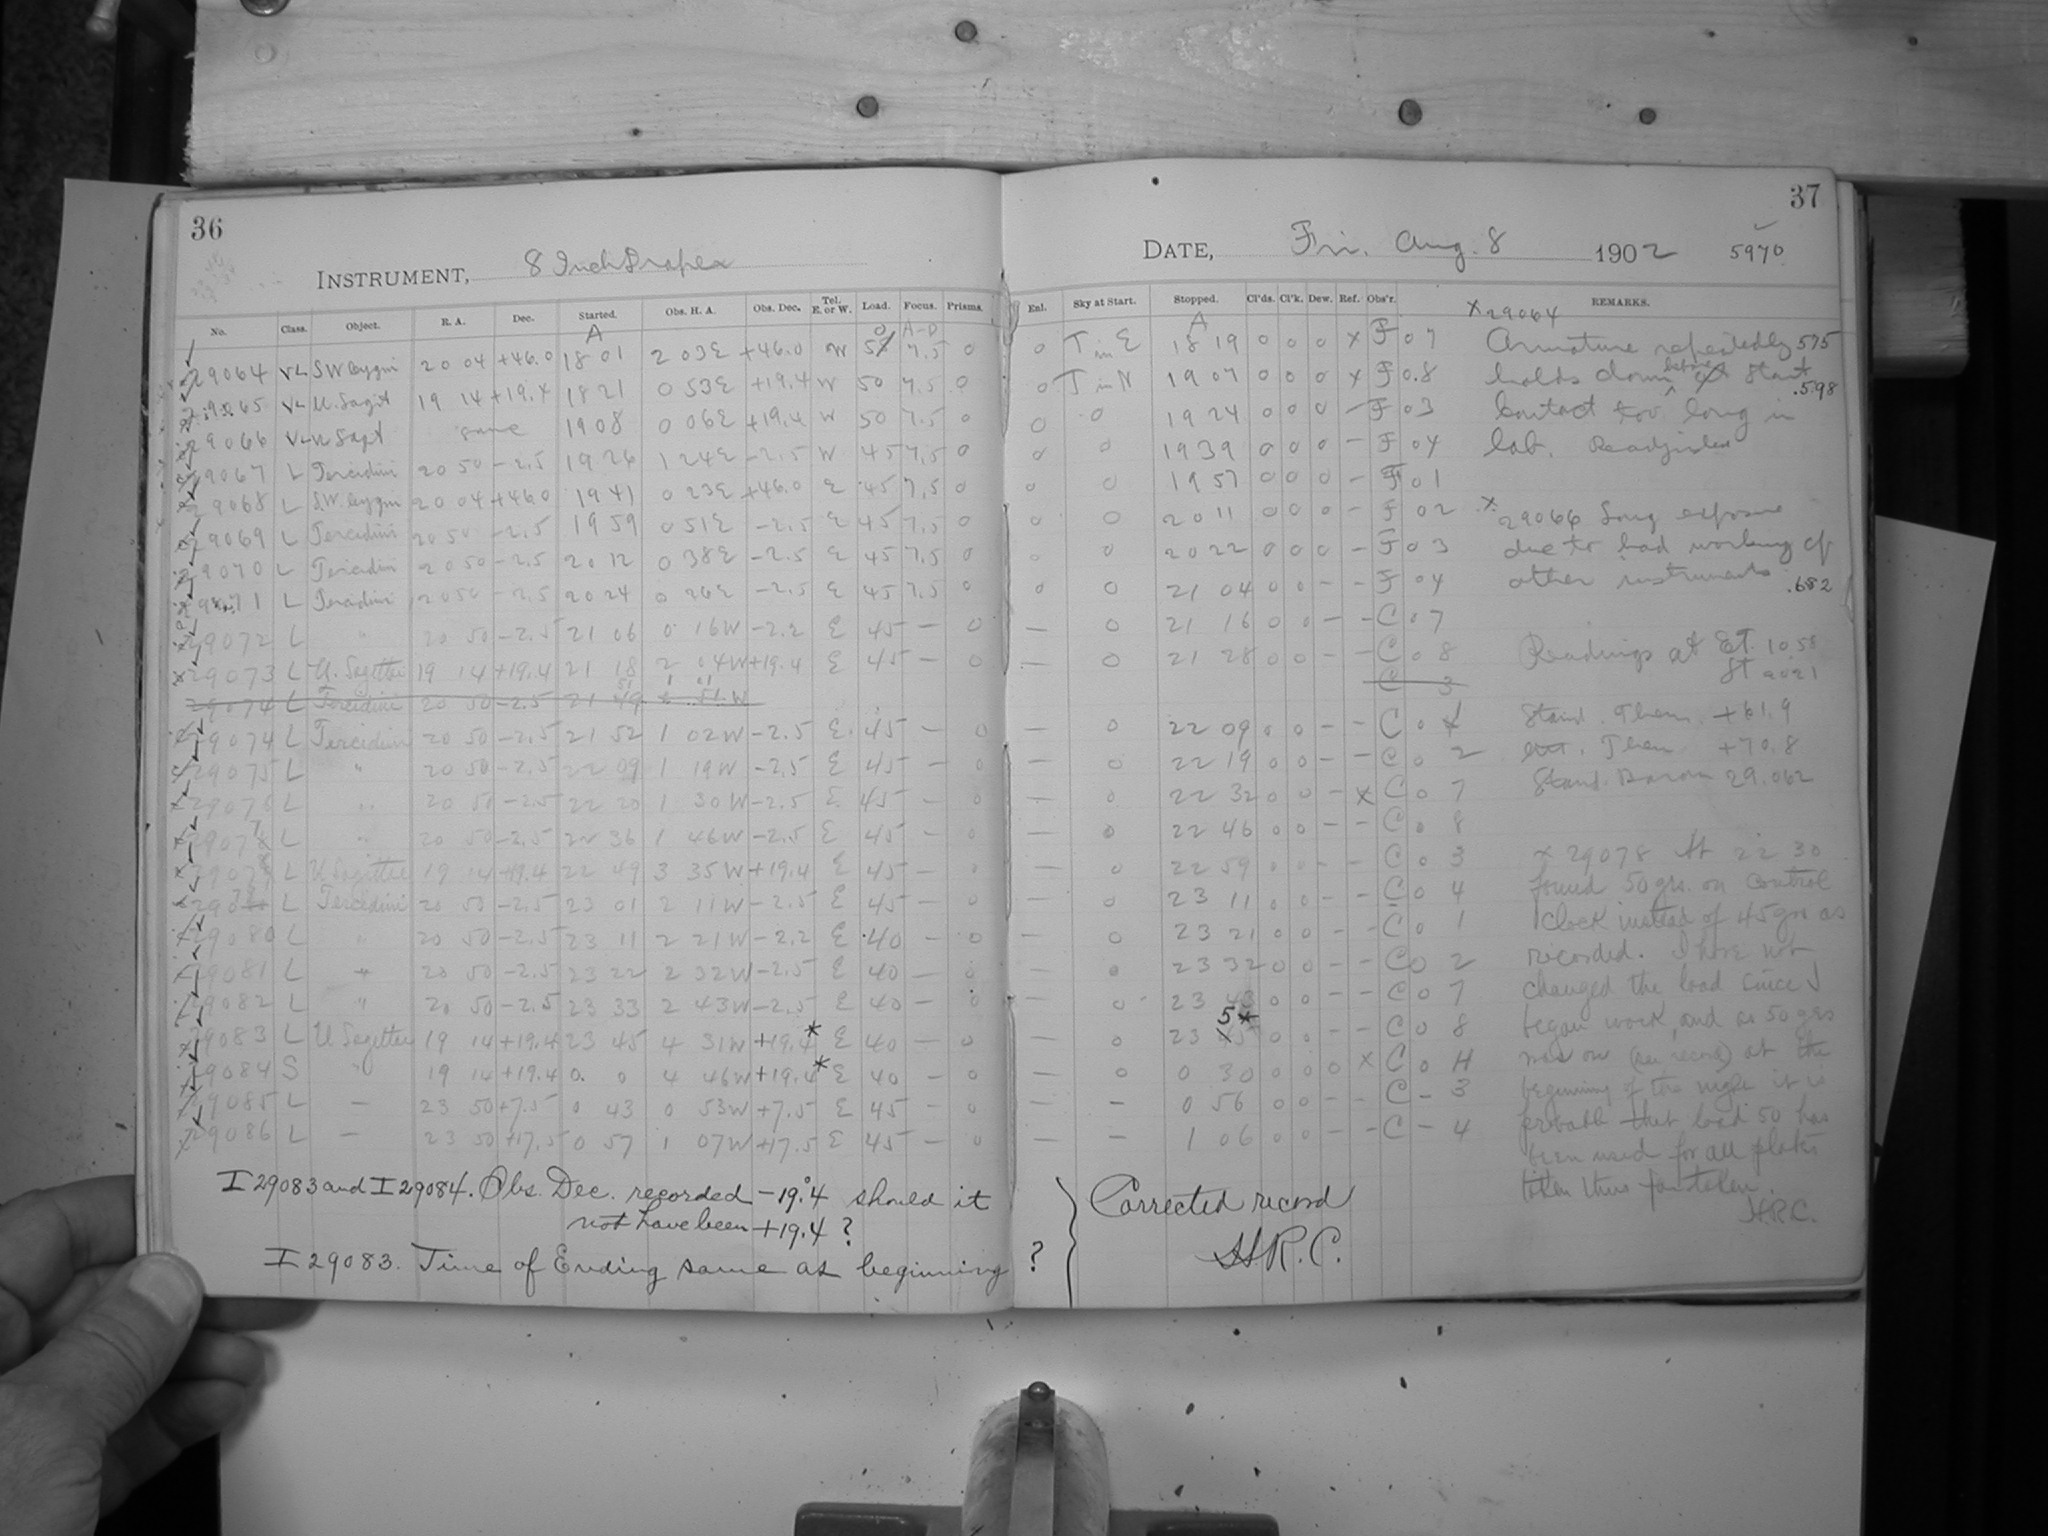 36
INSTRUMENT, 8 Inch Draper
No. Class. Object. R. A. Dec. Started. Obs. H. A. Obs. Dec. Tel. E. or W. Load. Focus. Prisms.
A A-D
29064 VL SW Cygni 20 04 +46.0 18 01 2 03E +46.0 W 50 7.5 0
29065 VL U. Sagit 19 14 +19.4 18 21 0 53E +19.4 W 50 7.5 0
29066 VL same 19 08 0 06E +19.4 W 50 7.5 0
29067 L Tercidini 20 50 -2.5 19 26 1 24E -2.5 W 45 7.5 0
29068 L S.W. Cygni 20 04 +46.0 19 41 0 23E +46.0 E 45 7.5 0
29069 L Tercidini 20 50 -2.5 19 59 0 51E -2.5 E 45 7.5 0
29070 L Tercidini 20 50 -2.5 20 12 0 38E -2.5 E 45 7.5 0
29071 L Tercidini 20 50 -2.5 20 24 0 26E -2.5 E 45 7.5 0
29072 L " 20 50 -2.5 21 06 0 16W -2.2 E 45 — 0
29073 L U. Sagittae 19 14 +19.4 21 18 2 04W +19.4 E 45 — 0
29074 L Tercidini 20 50 -2.5 21 49 51 W
29074 L Tercidini 20 50 -2.5 21 52 1 02W -2.5 E. 45 — 0
29075 L " 20 50 -2.5 22 09 1 19W -2.5 E 45 — 0
29076 L " 20 50 -2.5 22 20 1 30W -2.5 E 45 — 0
29077 L " 20 50 -2.5 22 36 1 46W -2.5 E 45 — 0
29078 L U Sagittae 19 14 +19.4 22 49 3 35W +19.4 E 45 — 0
29079 L Tercidini 20 50 -2.5 23 01 2 11W -2.5 E 45 — 0
29080 L " 20 50 -2.5 23 11 2 21W -2.2 E 40 — 0
29081 L " 20 50 -2.5 23 22 2 32W -2.5 E 40 — 0
29082 L " 20 50 -2.5 23 33 2 43W -2.5 E 40 — 0
29083 L U Sagittae 19 14 +19.4 23 45 4 31W +19.4* E 40 — 0
29084 S " 19 14 +19.4 0. 0 4 46W +19.4* E 40 — 0
29085 L — 23 50 +7.5 0 43 0 53W +7.5 E 45 — 0
29086 L — 23 50 +17.5 0 57 1 07W +17.5 E 45 — 0
I 29083 and I 29084. Obs. Dec. recorded -19.°4 should it
not have been +19.4 ?
I 29083. Time of Ending same as beginning ?
37
DATE, Fri. Aug. 8 1902 5970
Enl. Sky at Start. Stopped. Cl'ds. Cl'k. Dew. Ref. Obs'r. REMARKS.
A
0 T in E 18 19 0 0 0 x F 0 7
0 T in N 19 07 0 0 0 x F 0.8
0 0 19 24 0 0 0 - F 0 3
0 0 19 39 0 0 0 - F 0 4
0 0 19 57 0 0 0 - F 0 1
0 0 20 11 0 0 0 - F 0 2
0 0 20 22 0 0 0 - F 0 3
0 0 21 04 0 0 - - F 0 4
— 0 21 16 0 0 - - C 0 7
— 0 21 28 0 0 - - C 0 8
C 3
— 0 22 09 0 0 - - C 0 1
— 0 22 19 0 0 - - C 0 2
— 0 22 32 0 0 - x C 0 7
— 0 22 46 0 0 - - C 0 8
— 0 22 59 0 0 - - C 0 3
— 0 23 11 0 0 - - C 0 4
— 0 23 21 0 0 - - C 0 1
— 0 23 32 0 0 - - C 0 2
— 0 23 43 0 0 - - C 0 7
5 *
— 0 23 45 0 0 - - C 0 8
— 0 0 30 0 0 0 x C 0 H
— — 0 56 0 0 - - C - 3
— — 1 06 0 0 - - C - 4
x 29064
Armature repeatedly .575
holds down before start .598
Contact too long in
lab. Readjusted
x 29066 Long exposure
due to bad working of
other instruments .682
Readings at E.T. 10.58
St 2021
Stand. Ther. +61.9
ext. Ther +70.8
Stand. Barom 29.062
x 29078 At 22 30
found 50 grs. on Control
Clock instead of 45 grs as
recorded. I have not
changed the load since I
began work, and as 50 grs
was on (see record) at the
beginning of the night it is
probable that load 50 has
been used for all plates
taken thus far
H.R.C.
Corrected record
H.R.C.